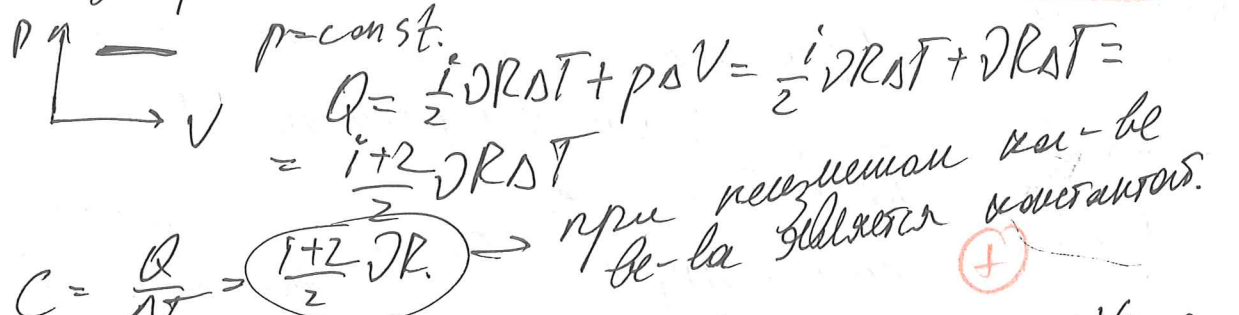 P
V
p=const.
Q = i/2 νRΔT + pΔV = i/2 νRΔT + νRΔT =
= (i+2)/2 νRΔT
C = Q/ΔT = (i+2)/2 νR. → при неизменном кол-ве
ве-ва является константой.
+